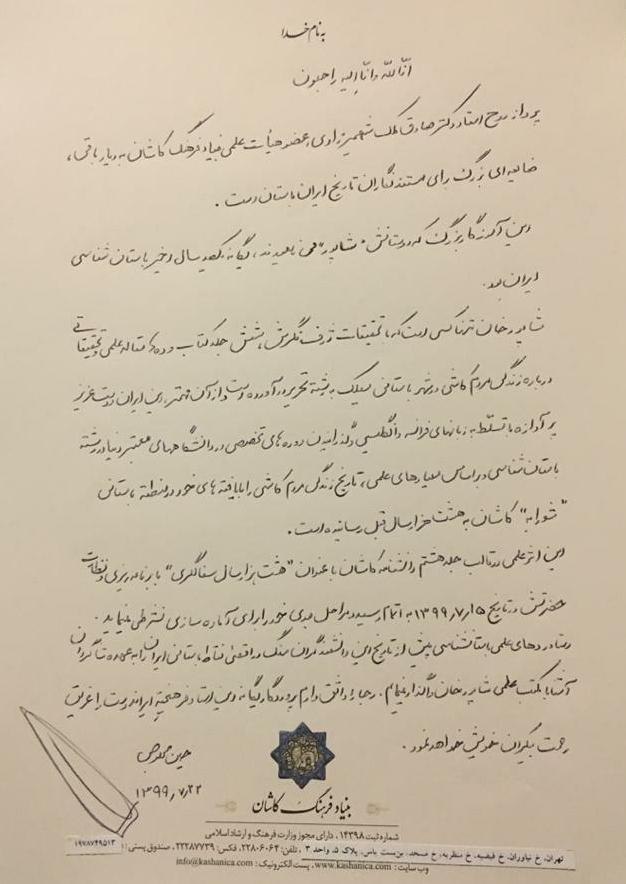 به نام خدا
انّا للّه و انّا الیه راجعون
پرواز روح استاد دکتر صادق ملک شهمیرزادی، عضو هیأت علمی بنیاد فرهنگ کاشان به دیار باقی،
ضایعه‌ای بزرگ برای مستندنگاران تاریخ ایران باستان است.
این آموزگار بزرگ که دوستانش "شاپور" می‌نامیدند، یگانه یکصد سال اخیر باستان شناسی
ایران بود.
شاپورخان تنها کسی است که با تحقیقات ژرف نگرش، شش جلد کتاب و ده‌ها مقاله علمی و تحقیقاتی
درباره زندگی مردم کاشی در شهر باستانی سیلک به رشته تحریر درآورده است و از آن مهمتر، این ایران دوست عزیز
پرآوازه با تسلط به زبانهای فرانسه و انگلیسی و گذرانیدن دوره‌های تخصصی در دانشگاههای معتبر دنیا در رشته
باستان شناسی و بر اساس معیارهای علمی، تاریخ زندگی مردم کاشی را با یافته‌های خود در منطقه باستانی
"شورابه" کاشان به هشت هزار سال قبل رسانیده است.
این اثر علمی در قالب جلد هشتم دانشنامه کاشان با عنوان "هشت هزار سال سفالگری" با برنامه‌ریزی و نظارت
حضرتش در تاریخ ۱۳۹۹٫۷٫۱۵ به اتمام رسید و مراحل بعدی خود را برای آماده سازی نشر طی می‌نماید.
دستاوردهای علمی باستانشناسی پیش از تاریخ این دانشمند گران سنگ در اقصی نقاط باستانی ایران را به عهده شاگردان
آشنا با مکتب علمی شاپورخان واگذار می‌نمایم. رجاء واثق دارم پروردگار یگانه این استاد فرهیخته ایراندوست را غریق
رحمت بیکران خویش خواهد نمود.
حسین محلوجی
۱۳۹۹٫۷٫۲۲
بنیاد فرهنگ کاشان
شماره ثبت ۱۴۳۹۸، دارای مجوز وزارت فرهنگ و ارشاد اسلامی
تهران، خ نیاوران، خ فیضیه، خ منظریه، خ مسجد، بن‌بست یاس، پلاک ۵، واحد ۳، تلفن: ۲۲۸۰۶۰۶۴، فکس: ۲۲۲۸۷۷۳۹، صندوق پستی: ۱۹۷۸۷۴۹۵۱۳
وب سایت: www.kashanica.com، پست الکترونیک: info@kashanica.com